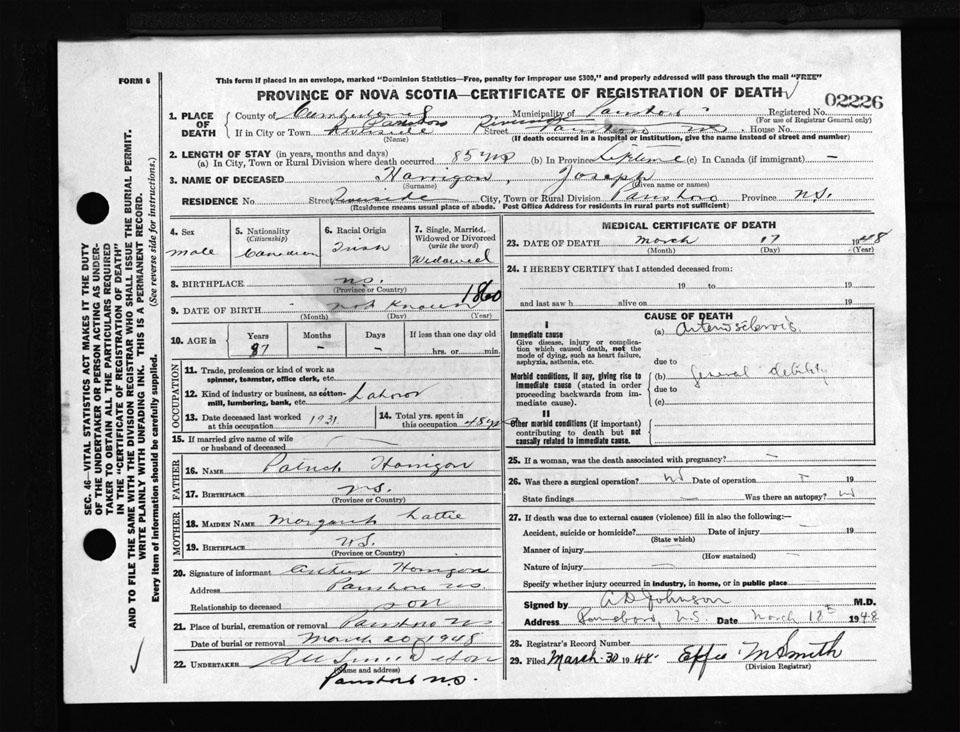 FORM 6
This form if placed in an envelope, marked "Dominion Statistics—Free, penalty for improper use $300," and properly addressed will pass through the mail "FREE"
PROVINCE OF NOVA SCOTIA—CERTIFICATE OF REGISTRATION OF DEATH
02226
1. PLACE OF DEATH
County of Cumberland Municipality of Parrsboro Registered No.
(For use of Registrar General only)
If in City or Town Riverside Street Parrsboro NS House No.
(Name) (If death occurred in a hospital or institution, give the name instead of street and number)
2. LENGTH OF STAY (in years, months and days)
(a) In City, Town or Rural Division where death occurred 85 yrs (b) In Province Lifetime (c) In Canada (if immigrant) —
3. NAME OF DECEASED Harrigan, Joseph
(Surname) (Given name or names)
RESIDENCE No Street Riverside City, Town or Rural Division Parrsboro Province N.S.
(Residence means usual place of abode. Post Office Address for residents in rural parts not sufficient)
4. Sex
male
5. Nationality
(Citizenship)
Canadian
6. Racial Origin
Irish
7. Single, Married, Widowed or Divorced
(write the word)
Widowed
8. BIRTHPLACE N.S.
(Province or Country)
9. DATE OF BIRTH not known 1860
(Month) (Day) (Year)
10. AGE in
Years Months Days If less than one day old
87 - - hrs. or min.
OCCUPATION
11. Trade, profession or kind of work as
spinner, teamster, office clerk, etc.
12. Kind of industry or business, as cotton-
mill, lumbering, bank, etc. Labor
13. Date deceased last worked
at this occupation 1931
14. Total yrs. spent in
this occupation 48 yrs
15. If married give name of wife
or husband of deceased —
FATHER
16. NAME Patrick Harrigan
17. BIRTHPLACE N.S.
(Province or Country)
MOTHER
18. MAIDEN NAME Margaret
19. BIRTHPLACE N.S.
(Province or Country)
20. Signature of informant Arthur Harrigan
Address Parrsboro N.S.
Relationship to deceased son
21. Place of burial, cremation or removal Parrsboro NS
Date of burial or removal March 20, 1948
22. UNDERTAKER
(Name and address)
Parrsboro N.S.
MEDICAL CERTIFICATE OF DEATH
23. DATE OF DEATH March 17 1948
(Month) (Day) (Year)
24. I HEREBY CERTIFY that I attended deceased from:
19 to 19
and last saw h alive on 19
CAUSE OF DEATH
I
Immediate cause
Give disease, injury or complication which caused death, not the mode of dying, such as heart failure, asphyxia, asthenia, etc.
(a) Arteriosclerosis
due to
Morbid conditions, if any, giving rise to immediate cause (stated in order proceeding backwards from immediate cause).
(b) general debility
due to
(c)
II
Other morbid conditions (if important) contributing to death but not causally related to immediate cause.
25. If a woman, was the death associated with pregnancy? —
26. Was there a surgical operation? No Date of operation —
State findings — Was there an autopsy? No
27. If death was due to external causes (violence) fill in also the following:—
Accident, suicide or homicide? Date of injury 19
(State which)
Manner of injury
(How sustained)
Nature of injury
Specify whether injury occurred in industry, in home, or in public place
Signed by A D Johnson M.D.
Address Parrsboro, N.S. Date March 1948
28. Registrar's Record Number
29. Filed March 30 1948 Effie M Smith
(Division Registrar)
SEC. 46—VITAL STATISTICS ACT MAKES IT THE DUTY
OF THE UNDERTAKER OR PERSON ACTING AS UNDER-
TAKER TO OBTAIN ALL THE PARTICULARS REQUIRED
IN THE "CERTIFICATE OF REGISTRATION OF DEATH"
AND TO FILE THE SAME WITH THE DIVISION REGISTRAR WHO SHALL ISSUE THE BURIAL PERMIT.
WRITE PLAINLY WITH UNFADING INK. THIS IS A PERMANENT RECORD.
Every item of Information should be carefully supplied. (See reverse side for instructions.)